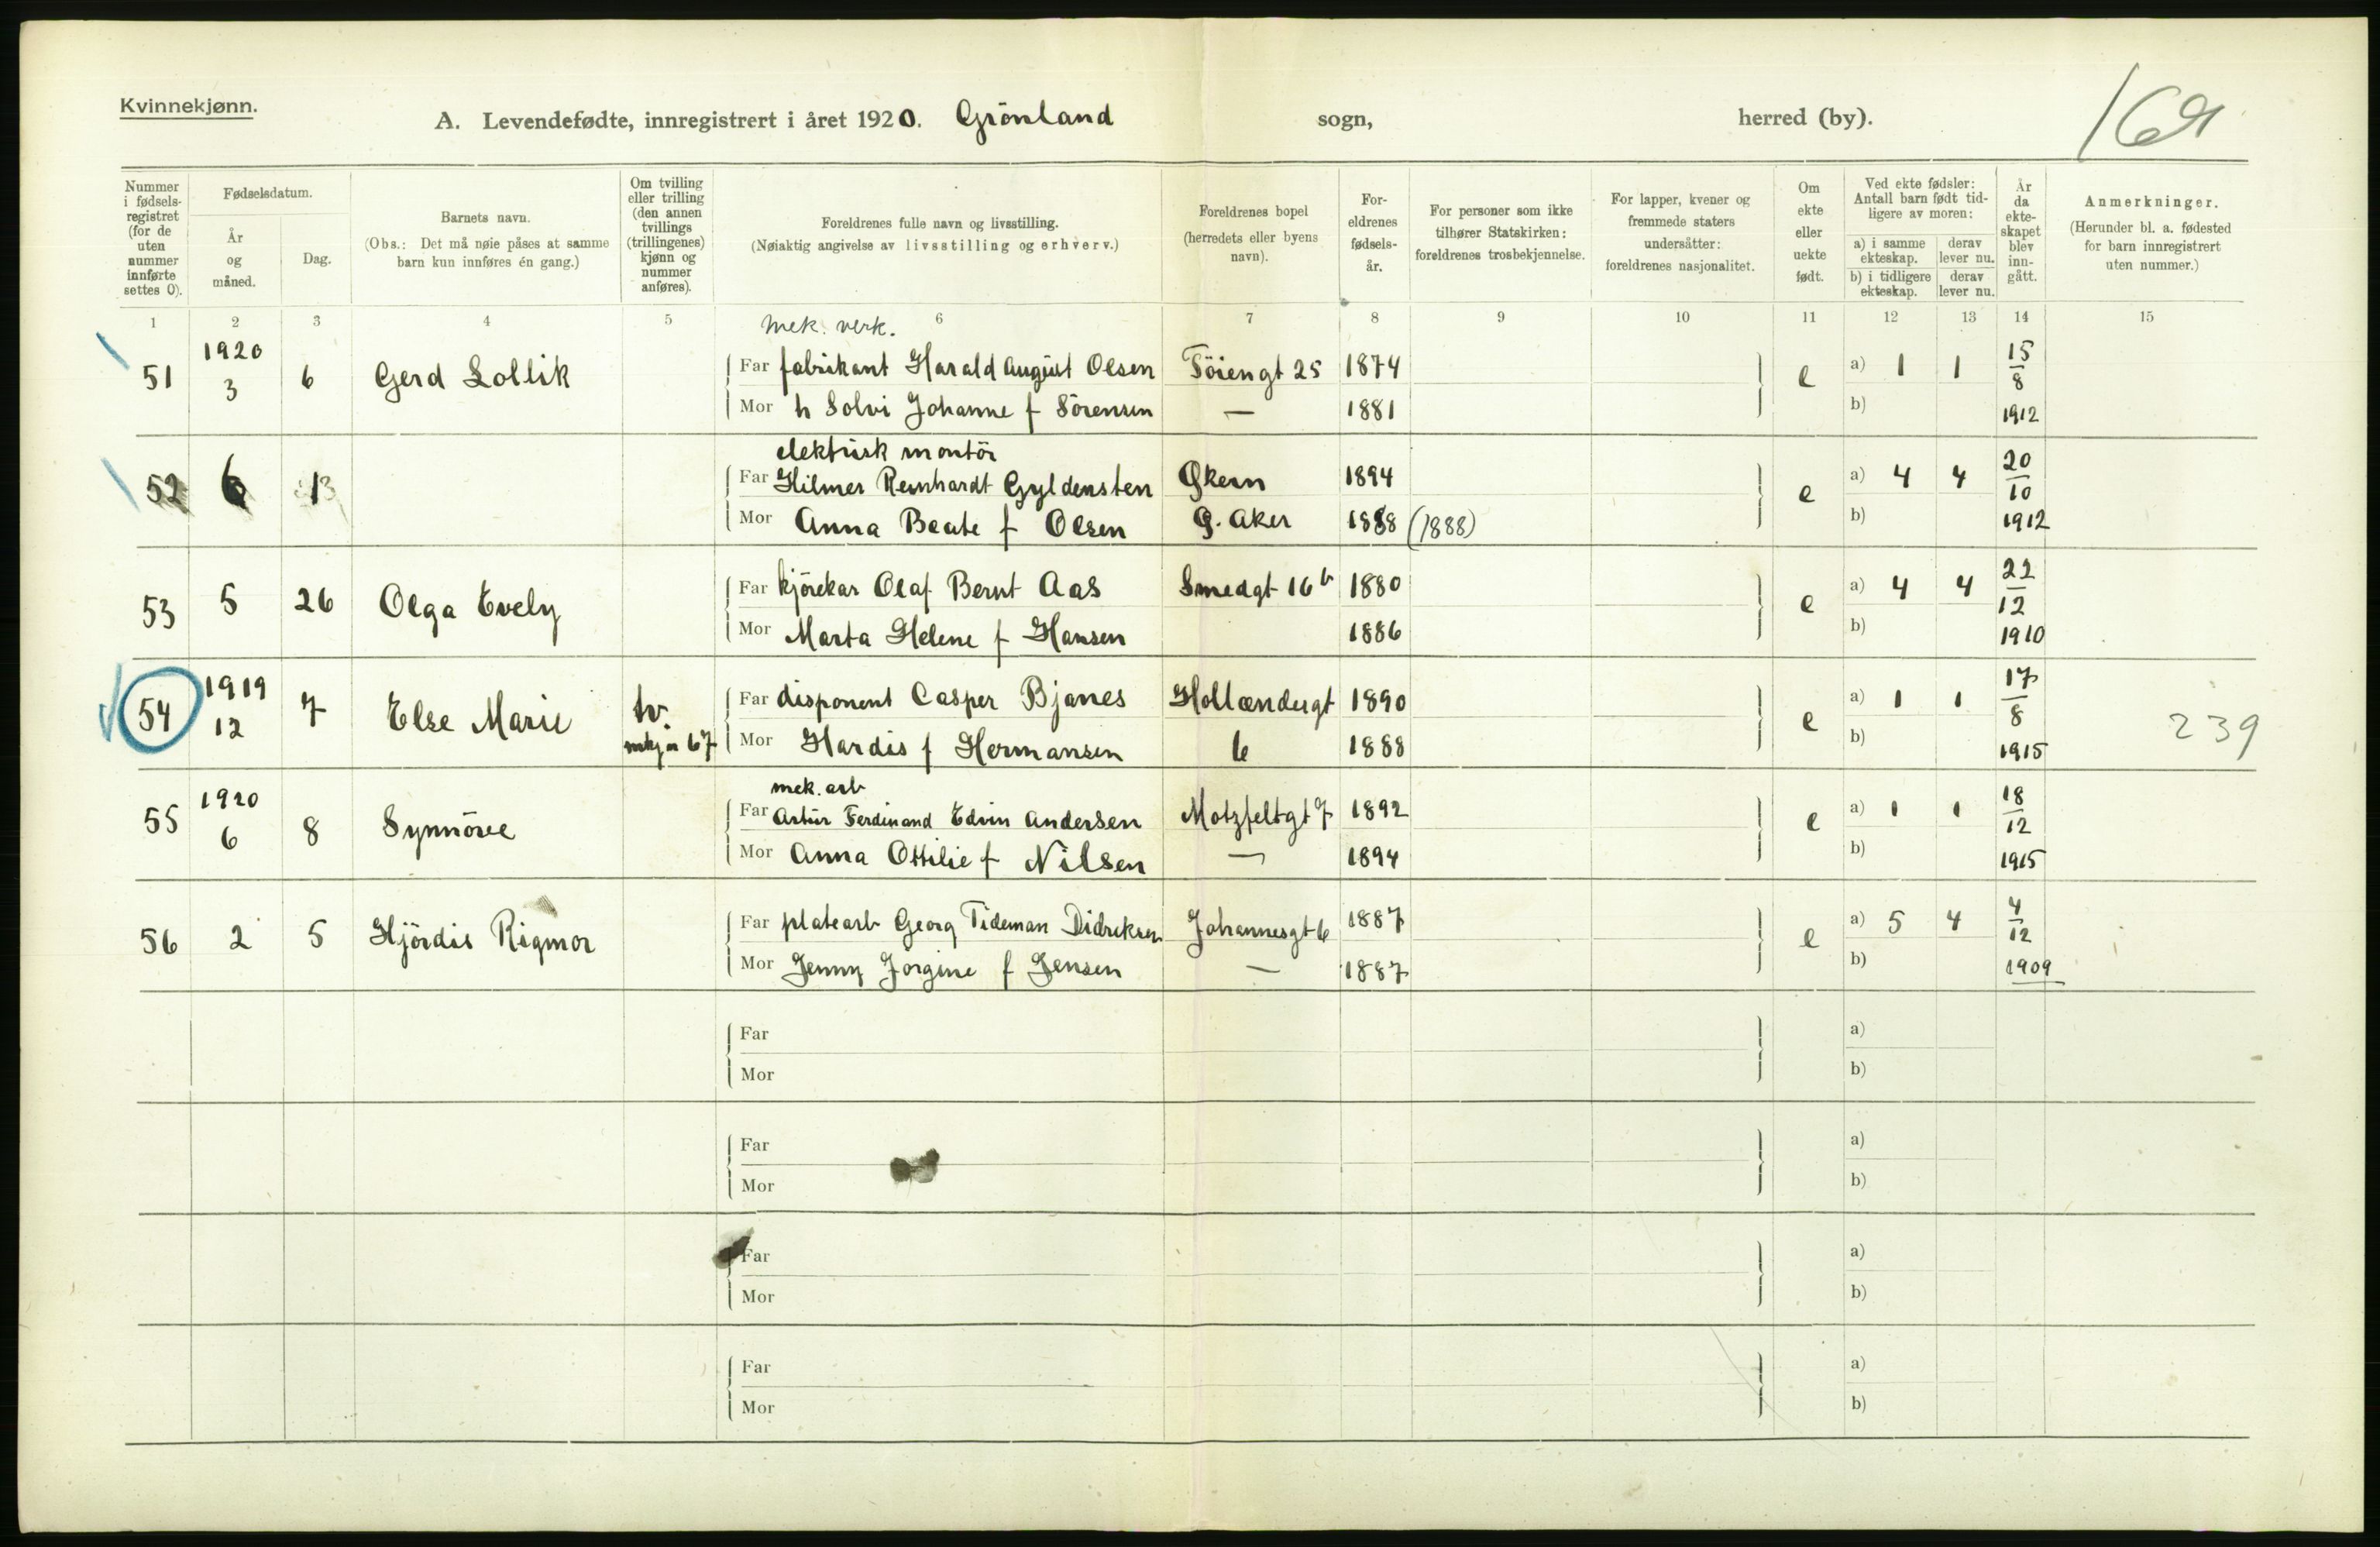 Kvinnekjønn.
A. Levendefødte, innregistrert i året 1920. Grönland sogn, herred (by).
Nummer i fødsels-registret (for de uten nummer innførte settes 0).
Fødselsdatum.
År og måned.
Dag.
Barnets navn.
(Obs.: Det må nøie påses at samme barn kun innføres én gang.)
Om tvilling eller trilling (den annen tvillings (trillingenes) kjønn og nummer anføres).
Foreldrenes fulle navn og livsstilling.
(Nøiaktig angivelse av livsstilling og erhverv.)
Foreldrenes bopel (herredets eller byens navn).
For-eldrenes fødsels-år.
For personer som ikke tilhører Statskirken: foreldrenes trosbekjennelse.
For lapper, kvener og fremmede staters undersåtter: foreldrenes nasjonalitet.
Om ekte eller uekte født.
Ved ekte fødsler: Antall barn født tid-ligere av moren:
a) i samme ekteskap. derav lever nu.
b) i tidligere ekteskap. derav lever nu.
År da ekte-skapet blev inn-gått.
Anmerkninger.
(Herunder bl. a. fødested for barn innregistrert uten nummer.)
1 2 3 4 5 6 7 8 9 10 11 12 13 14 15
mek. verk.
51 1920 3 6 Gerd Lollik Far fabrikant Harald August Olsen Töiengt 25 1874 e a) 1 1 15/8
Mor h Solvi Johanne f Sörensen — 1881 b) 1912
elektrisk montör
52 6 13 Far Hilmer Reinhardt Gyldensten Økern 1894 e a) 4 4 20/10
Mor Anna Beate f Olsen Ø. Aker 1888 (1888) b) 1912
53 5 26 Olga Evely Far kjörekar Olaf Bernt Aas Smedgt 16b 1880 e a) 4 4 22/12
Mor Marta Helene f Hansen 1886 b) 1910
54 1919 12 7 Else Marie tv. mkj nr 67 Far disponent Casper Bjanes Hollændergt 1890 e a) 1 1 17/8
Mor Hardis f Hermansen 6 1888 b) 1915 239
mek. arb
55 1920 6 8 Synnöve Far Artur Ferdinand Edvin Andersen Motzfeltgt 7 1892 e a) 1 1 18/12
Mor Anna Ottilie f Nilsen — 1894 b) 1915
56 2 5 Hjördis Rigmor Far platearb Georg Tideman Didriksen Johannesgt 6 1887 e a) 5 4 4/12
Mor Jenny Jorgine f Jensen — 1887 b) 1909
Far a)
Mor b)
Far a)
Mor b)
Far a)
Mor b)
Far a)
Mor b)